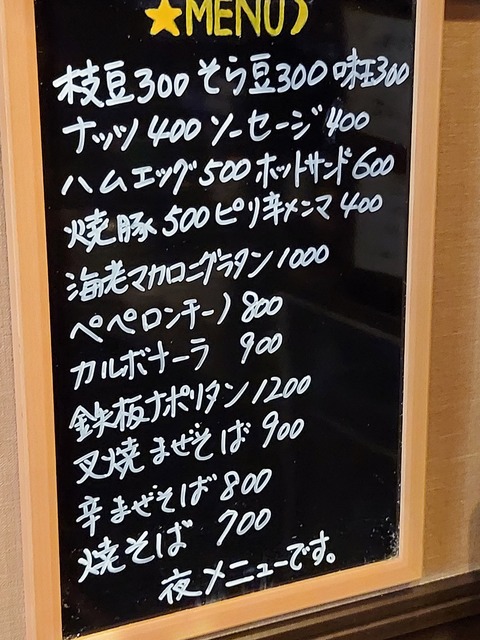 ★MENU
枝豆300 そら豆300 味玉300
ナッツ 400 ソーセージ 400
ハムエッグ 500 ホットサンド 600
焼豚 500 ピリ辛メンマ 400
海老マカロニグラタン 1000
ペペロンチーノ 800
カルボナーラ 900
鉄板ナポリタン 1200
叉焼まぜそば 900
辛まぜそば 800
焼そば 700
夜メニューです。